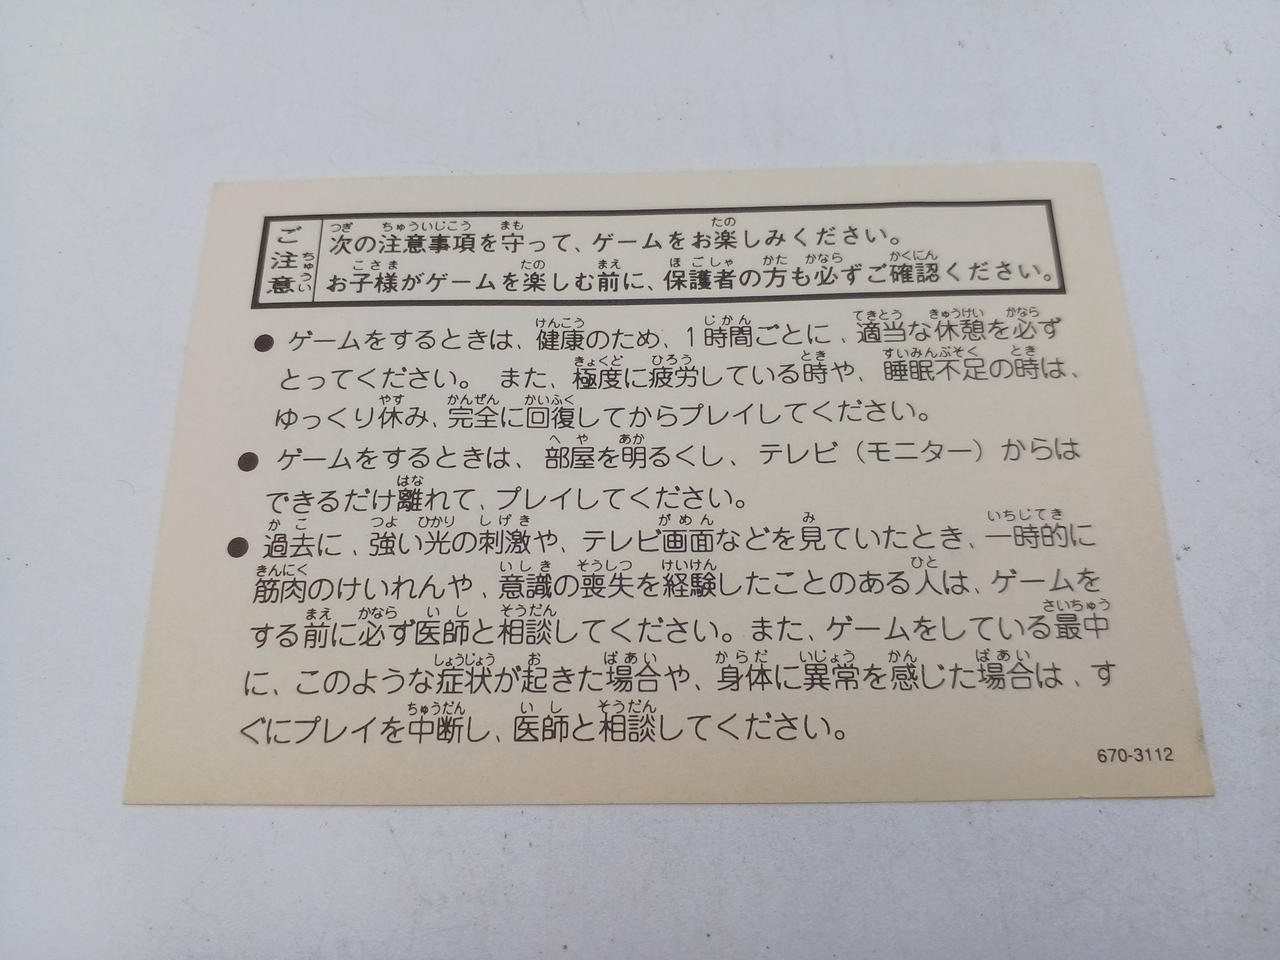 ご注意
次の注意事項を守って、ゲームをお楽しみください。
お子様がゲームを楽しむ前に、保護者の方も必ずご確認ください。
● ゲームをするときは、健康のため、1時間ごとに、適当な休憩を必ず
とってください。 また、極度に疲労している時や、睡眠不足の時は、
ゆっくり休み、完全に回復してからプレイしてください。
● ゲームをするときは、部屋を明るくし、テレビ（モニター）からは
できるだけ離れて、プレイしてください。
● 過去に、強い光の刺激や、テレビ画面などを見ていたとき、一時的に
筋肉のけいれんや、意識の喪失を経験したことのある人は、ゲームを
する前に必ず医師と相談してください。また、ゲームをしている最中
に、このような症状が起きた場合や、身体に異常を感じた場合は、す
ぐにプレイを中断し、医師と相談してください。
670-3112